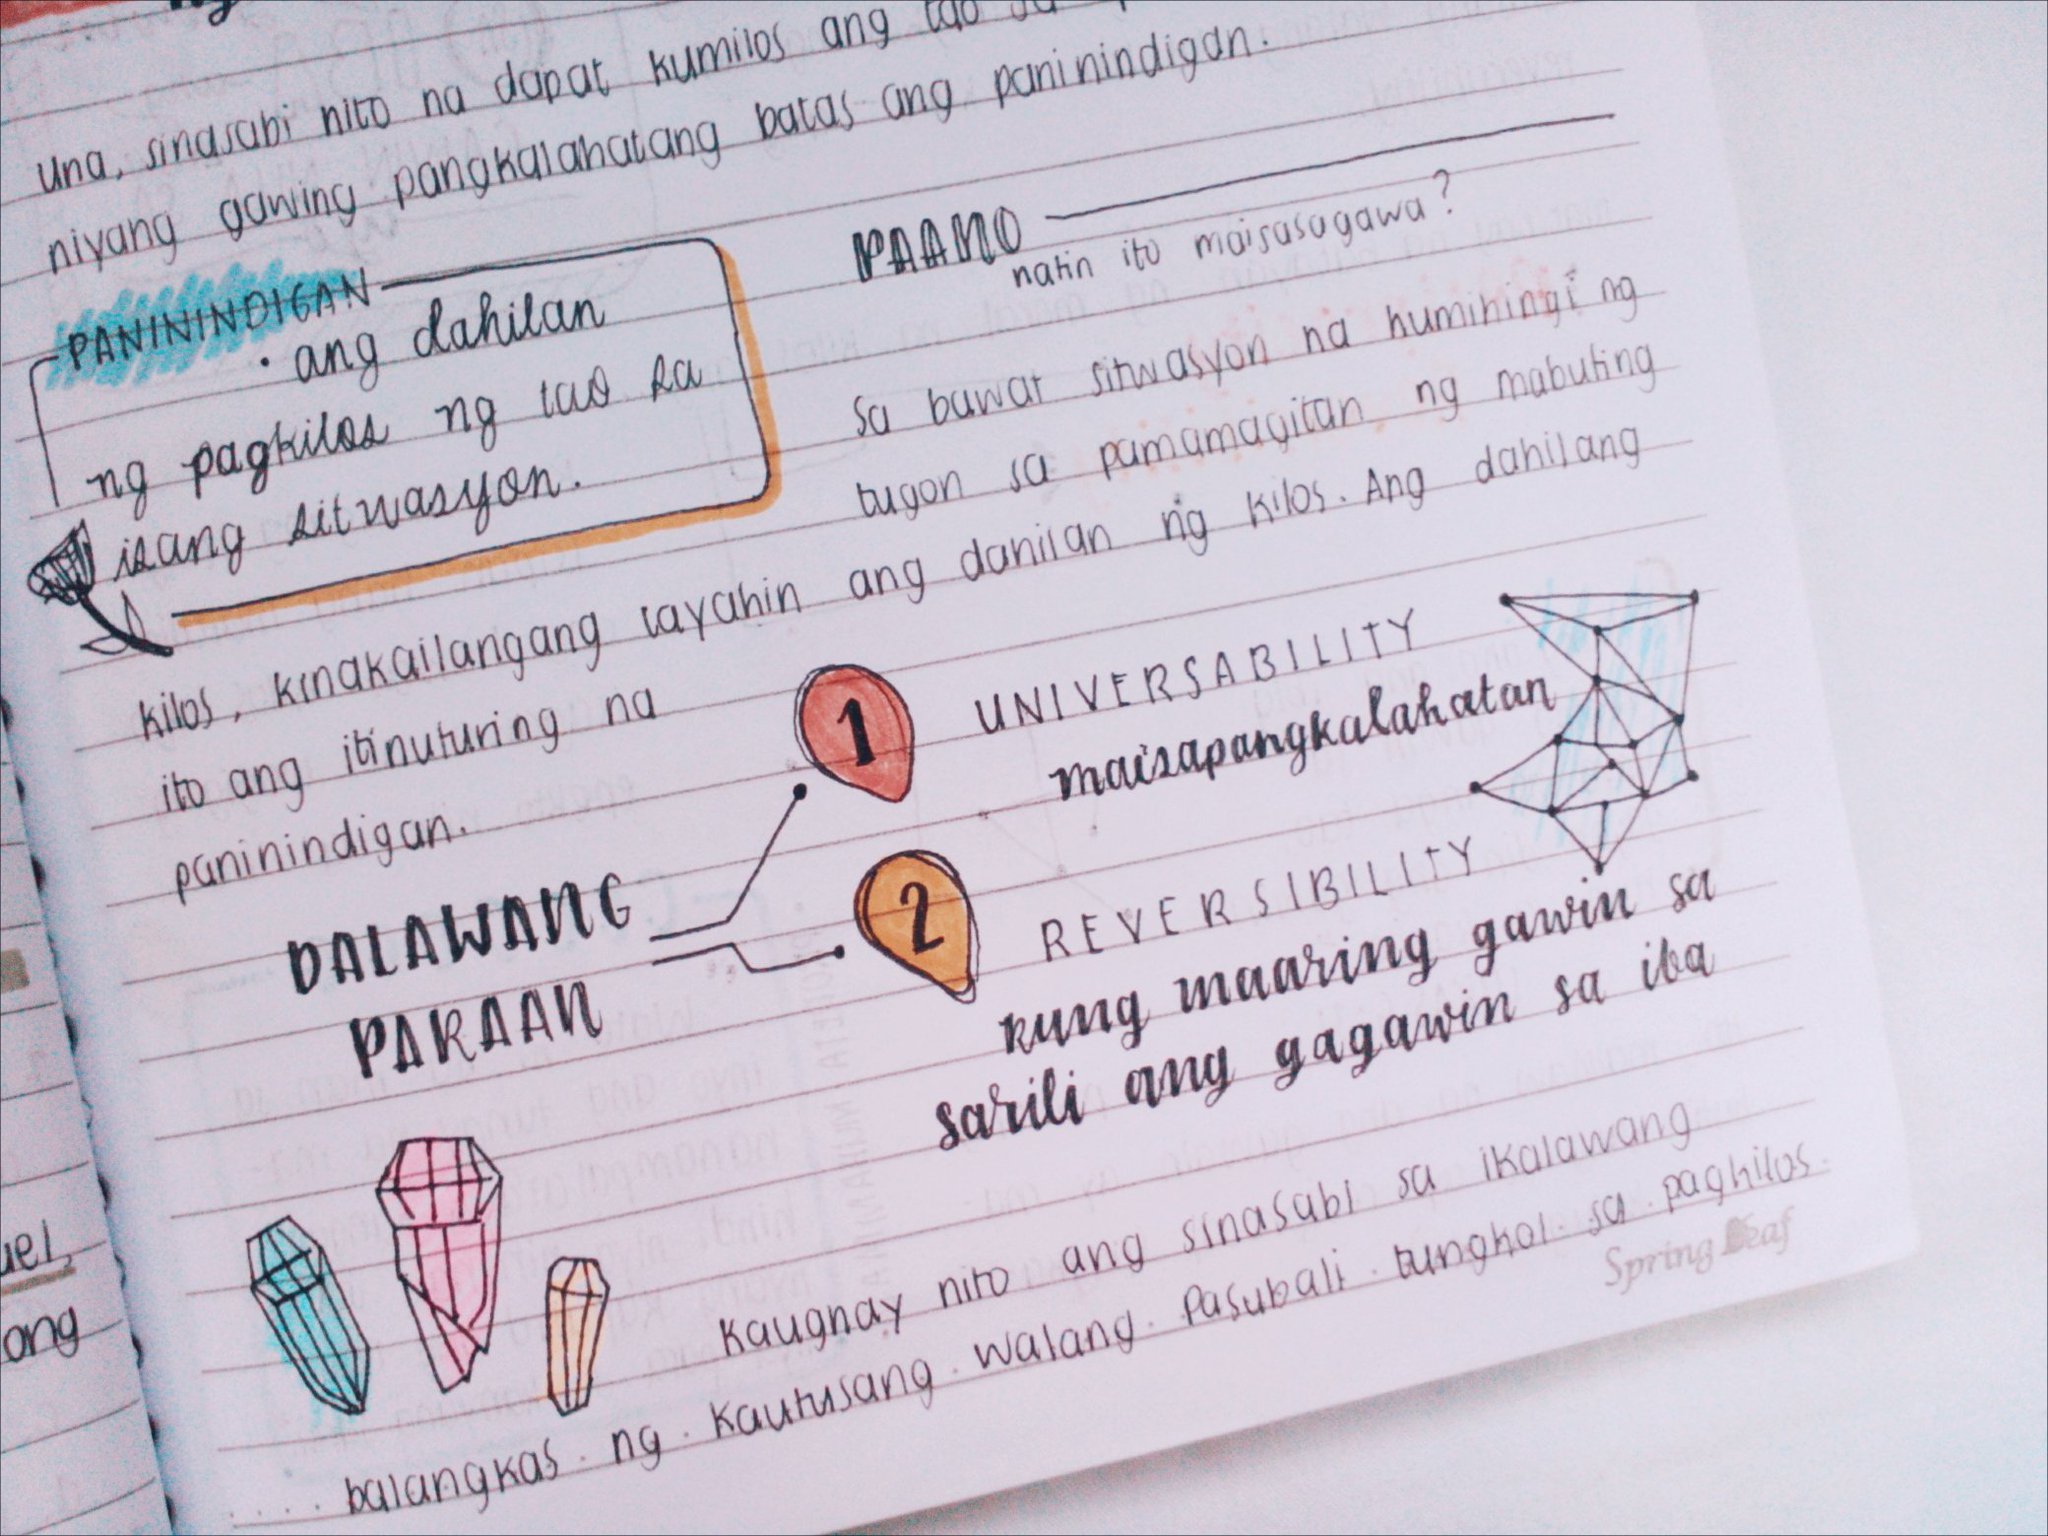 ng
Una, sinasabi nito na dapat kumilos ang tao sa
niyang gawing pangkalahatang batas ang paninindigan.
PANININDIGAN
• ang dahilan
ng pagkilos ng tao sa
isang sitwasyon.
PAANO
natin ito maisasagawa?
Sa bawat sitwasyon na humihingi ng
tugon sa pamamagitan ng mabuting
kilos, kinakailangang tayahin ang dahilan ng kilos. Ang dahilang
ito ang itinuturing na
paninindigan.
DALAWANG
PARAAN
1
UNIVERSABILITY
maisapangkalahatan
2
REVERSIBILITY
kung maaring gawin sa
sarili ang gagawin sa iba
Kaugnay nito ang sinasabi sa ikalawang
balangkas . ng . Kautusang . walang . Pasubali . tungkol . sa . pagkilos.
Spring Leaf
uel,
ong